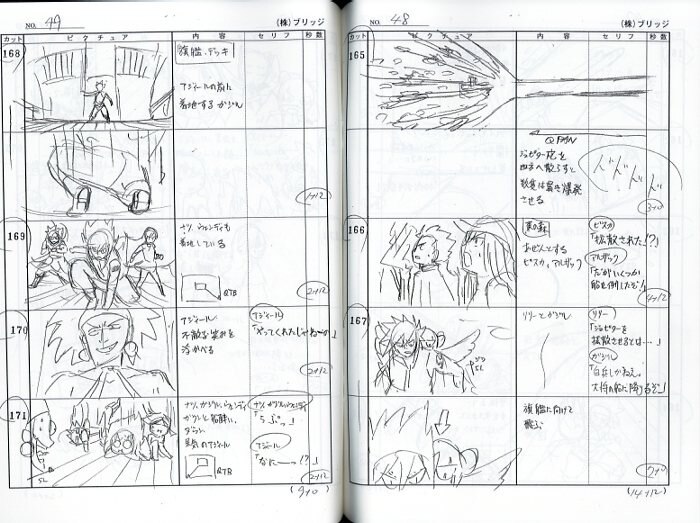 NO. 49
(株)ブリッジ
カット
ピクチュア
内容
セリフ
秒数
168
旗艦、デッキ
アジィールの前に
着地するガジル
1+12
169
ナツ、ウェンディも
着地している
QTB
2+12
170
アジィール
不敵な笑みを
浮かべる
アジィール
「やってくれたじゃねーか」
2+12
171
ナツ、ガジル、ウェンディ
ダウン
QTB
「うぷっ」
アジィール
「なにーっ!?」
2+12
(9+0)
NO. 48
(株)ブリッジ
カット
ピクチュア
内容
セリフ
秒数
165
Q PAN
ジュピター砲を
四方へ散らすと
数隻は貫き爆発
させる
ドドドド
3+0
166
東の森
あぜんとする
ビスカ、アルザック
ビスカ
「拡散された!?」
アルザック
「だがいくつか
船を倒したぞ!」
4+12
167
リリーとガジル
リリー
「ジュピターを
拡散させるとは…」
ガジル
「白兵しかねぇ。
大将の船に降りるぞ」
旗艦に向けて
飛ぶ
7+0
(14+12)